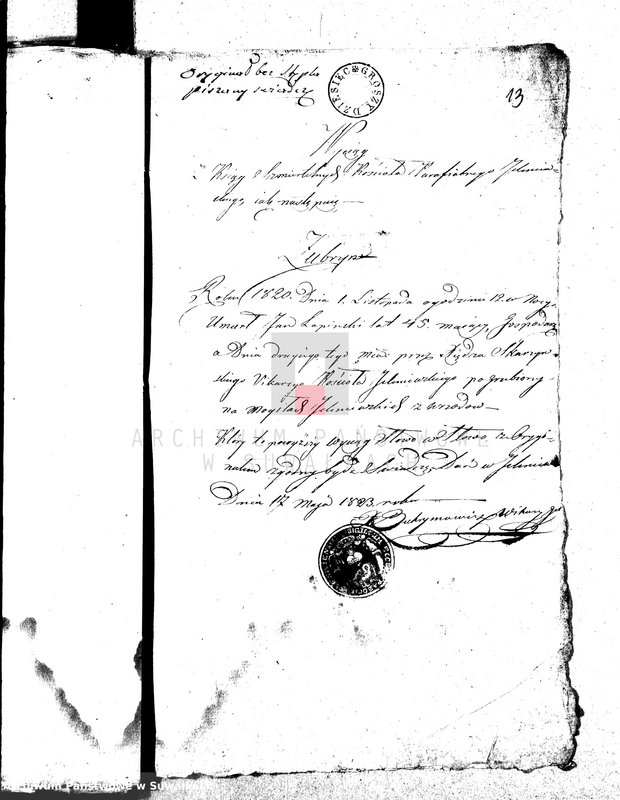 Oryginał bez Stępla
pisany świadczę
DZIESIĘC GROSZY
13
Wyciąg
z Ksiąg Zmartych Kościoła Parafialnego Jeleniew-
skiego jak następuie
Żubryn
Roku 1820. Dnia 1. Listopada o godzinie 12. w Nocy
Umarł Jan Łapinski lat 45. maiący, Gospodarz
a Dnia drugiego tego mies. przez Xiędza Skarzyn-
skiego Vikarego Kościoła Jeleniewskiego pogrzebiony
na mogiłach Jeleniewskich z wrzodow
Który to powyższy wyciąg Słowo w Słowo z Orygi-
nałem zgodny bydź świadczę, Dan w Jeleniewie
Dnia 17 Maja 1823. roku
Wikary
ARCHIWUM PAŃSTWOWE
W SUWAŁKACH
Archiwum Państwowe w Suw